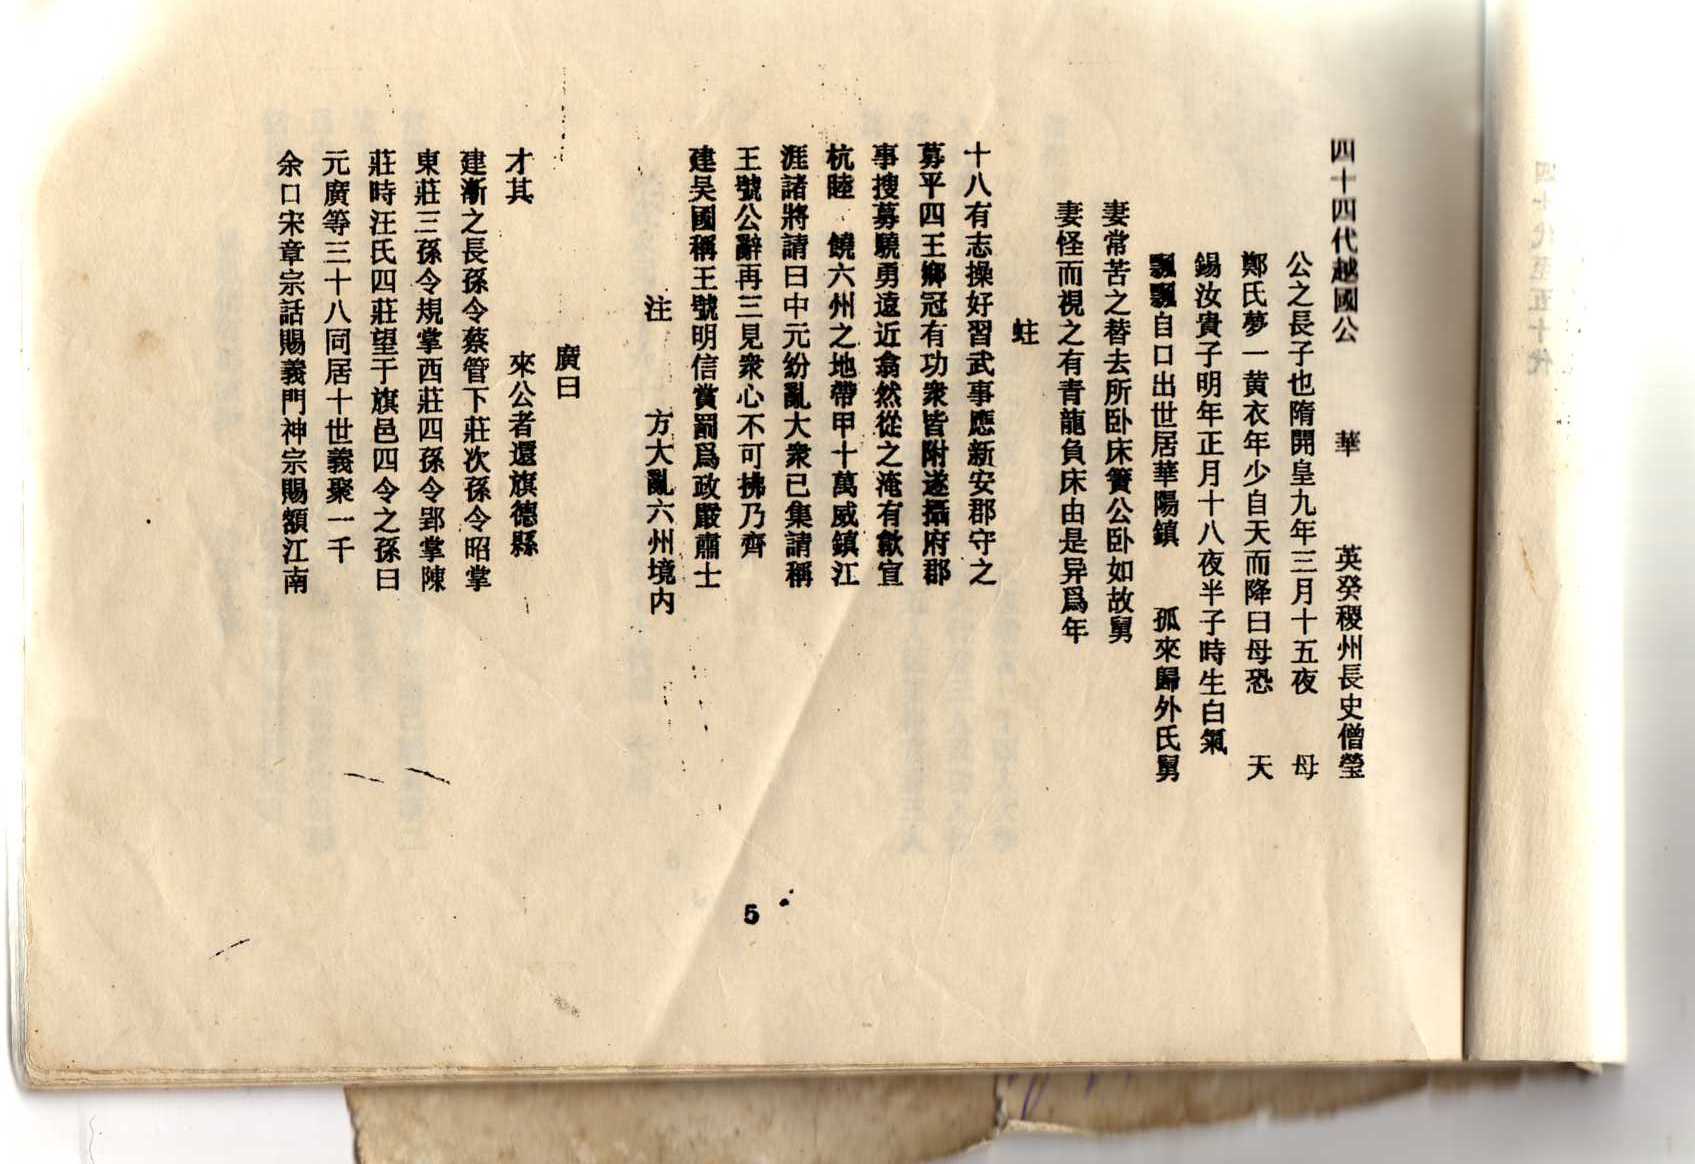 四十四代越國公　華　英癸稷州長史僧瑩
公之長子也隋開皇九年三月十五夜　母
鄭氏夢一黄衣年少自天而降曰母恐　天
錫汝貴子明年正月十八夜半子時生白氣
飄飄自口出世居華陽鎮　孤來歸外氏舅
妻常苦之替去所卧床簀公卧如故舅
妻怪而視之有青龍負床由是异爲年
蛀
十八有志操好習武事應新安郡守之
募平四王鄉冠有功衆皆附遂攝府郡
事搜募驍勇遠近翕然從之淹有歙宣
杭睦　饒六州之地帶甲十萬威鎮江
涯諸將請曰中元紛亂大衆已集請稱
王號公辭再三見衆心不可拂乃齊
建吴國稱王號明信賞罰爲政嚴肅士
注　方大亂六州境内
廣曰
才其　來公者還旗德縣
建漸之長孫令蔡管下莊次孫令昭掌
東莊三孫令規掌西莊四孫令郢掌陳
莊時汪氏四莊望于旗邑四令之孫曰
元廣等三十八同居十世義聚一千
余口宋章宗話賜義門神宗賜額江南
5